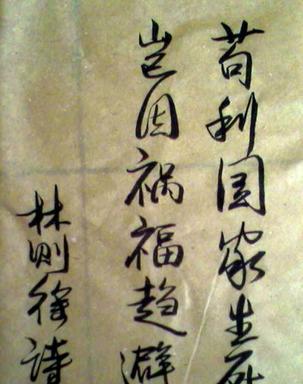 苟利国家生死
岂因祸福趋避
林则徐诗